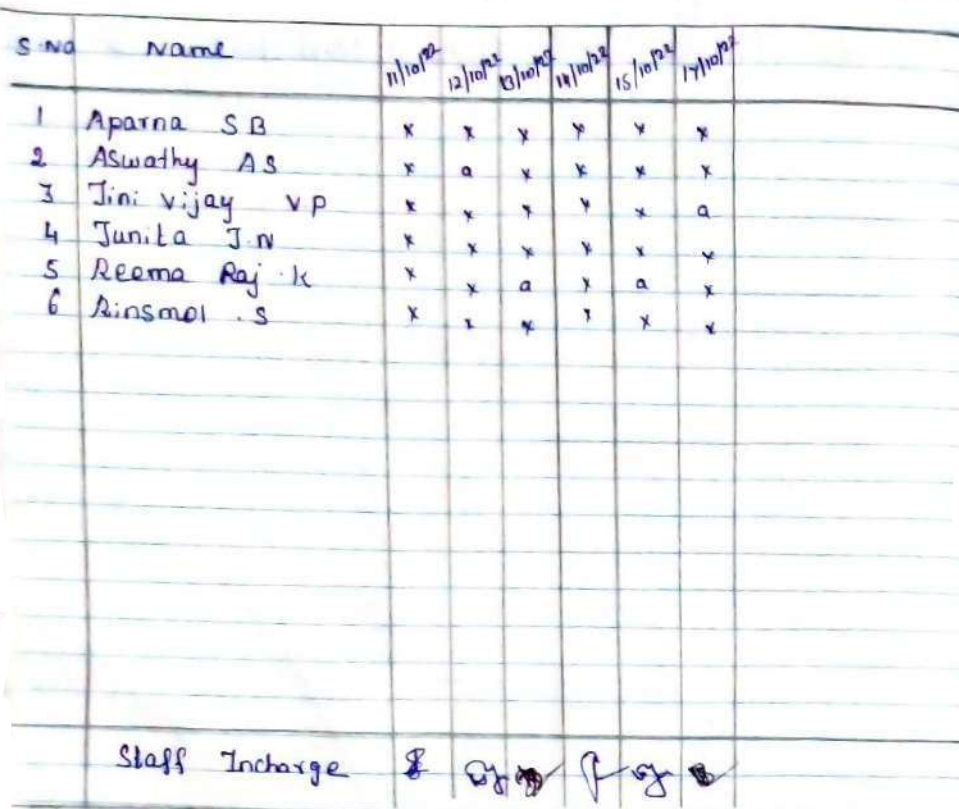 S.No Name 11/10/22 12/10/22 13/10/22 14/10/22 15/10/22 17/10/22
1 Aparna S B x x x x x x
2 ASwathy AS x a x x x x
3 Jini vijay VP x x x x x a
4 Junita J.N x x x x x x
5 Reema Raj .K x x a x a x
6 Rinsmol .S x x x x x x
Staff Incharge